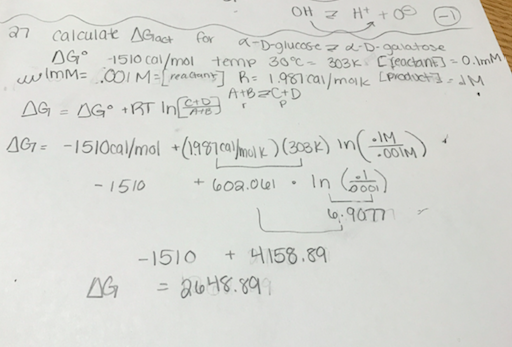 OH ⇌ H⁺ + O⊖ (-1)
27 calculate ΔGact for α-D-glucose ⇌ α-D-galatose
ΔG° -1510 cal/mol temp 30°C = 303K [reactant] = 0.1mM
1mM = .001M = [reactant] R = 1.987 cal/molK [product] = .1M
A+B ⇌ C+D
r p
ΔG = ΔG° + RT ln[C+D/A+B]
ΔG = -1510cal/mol + (1987cal/molK)(303K) ln(.1M/.001M)
-1510 + 602.061 · ln(.1/.0001)
6.9077
-1510 + 4158.89
ΔG = 2648.89